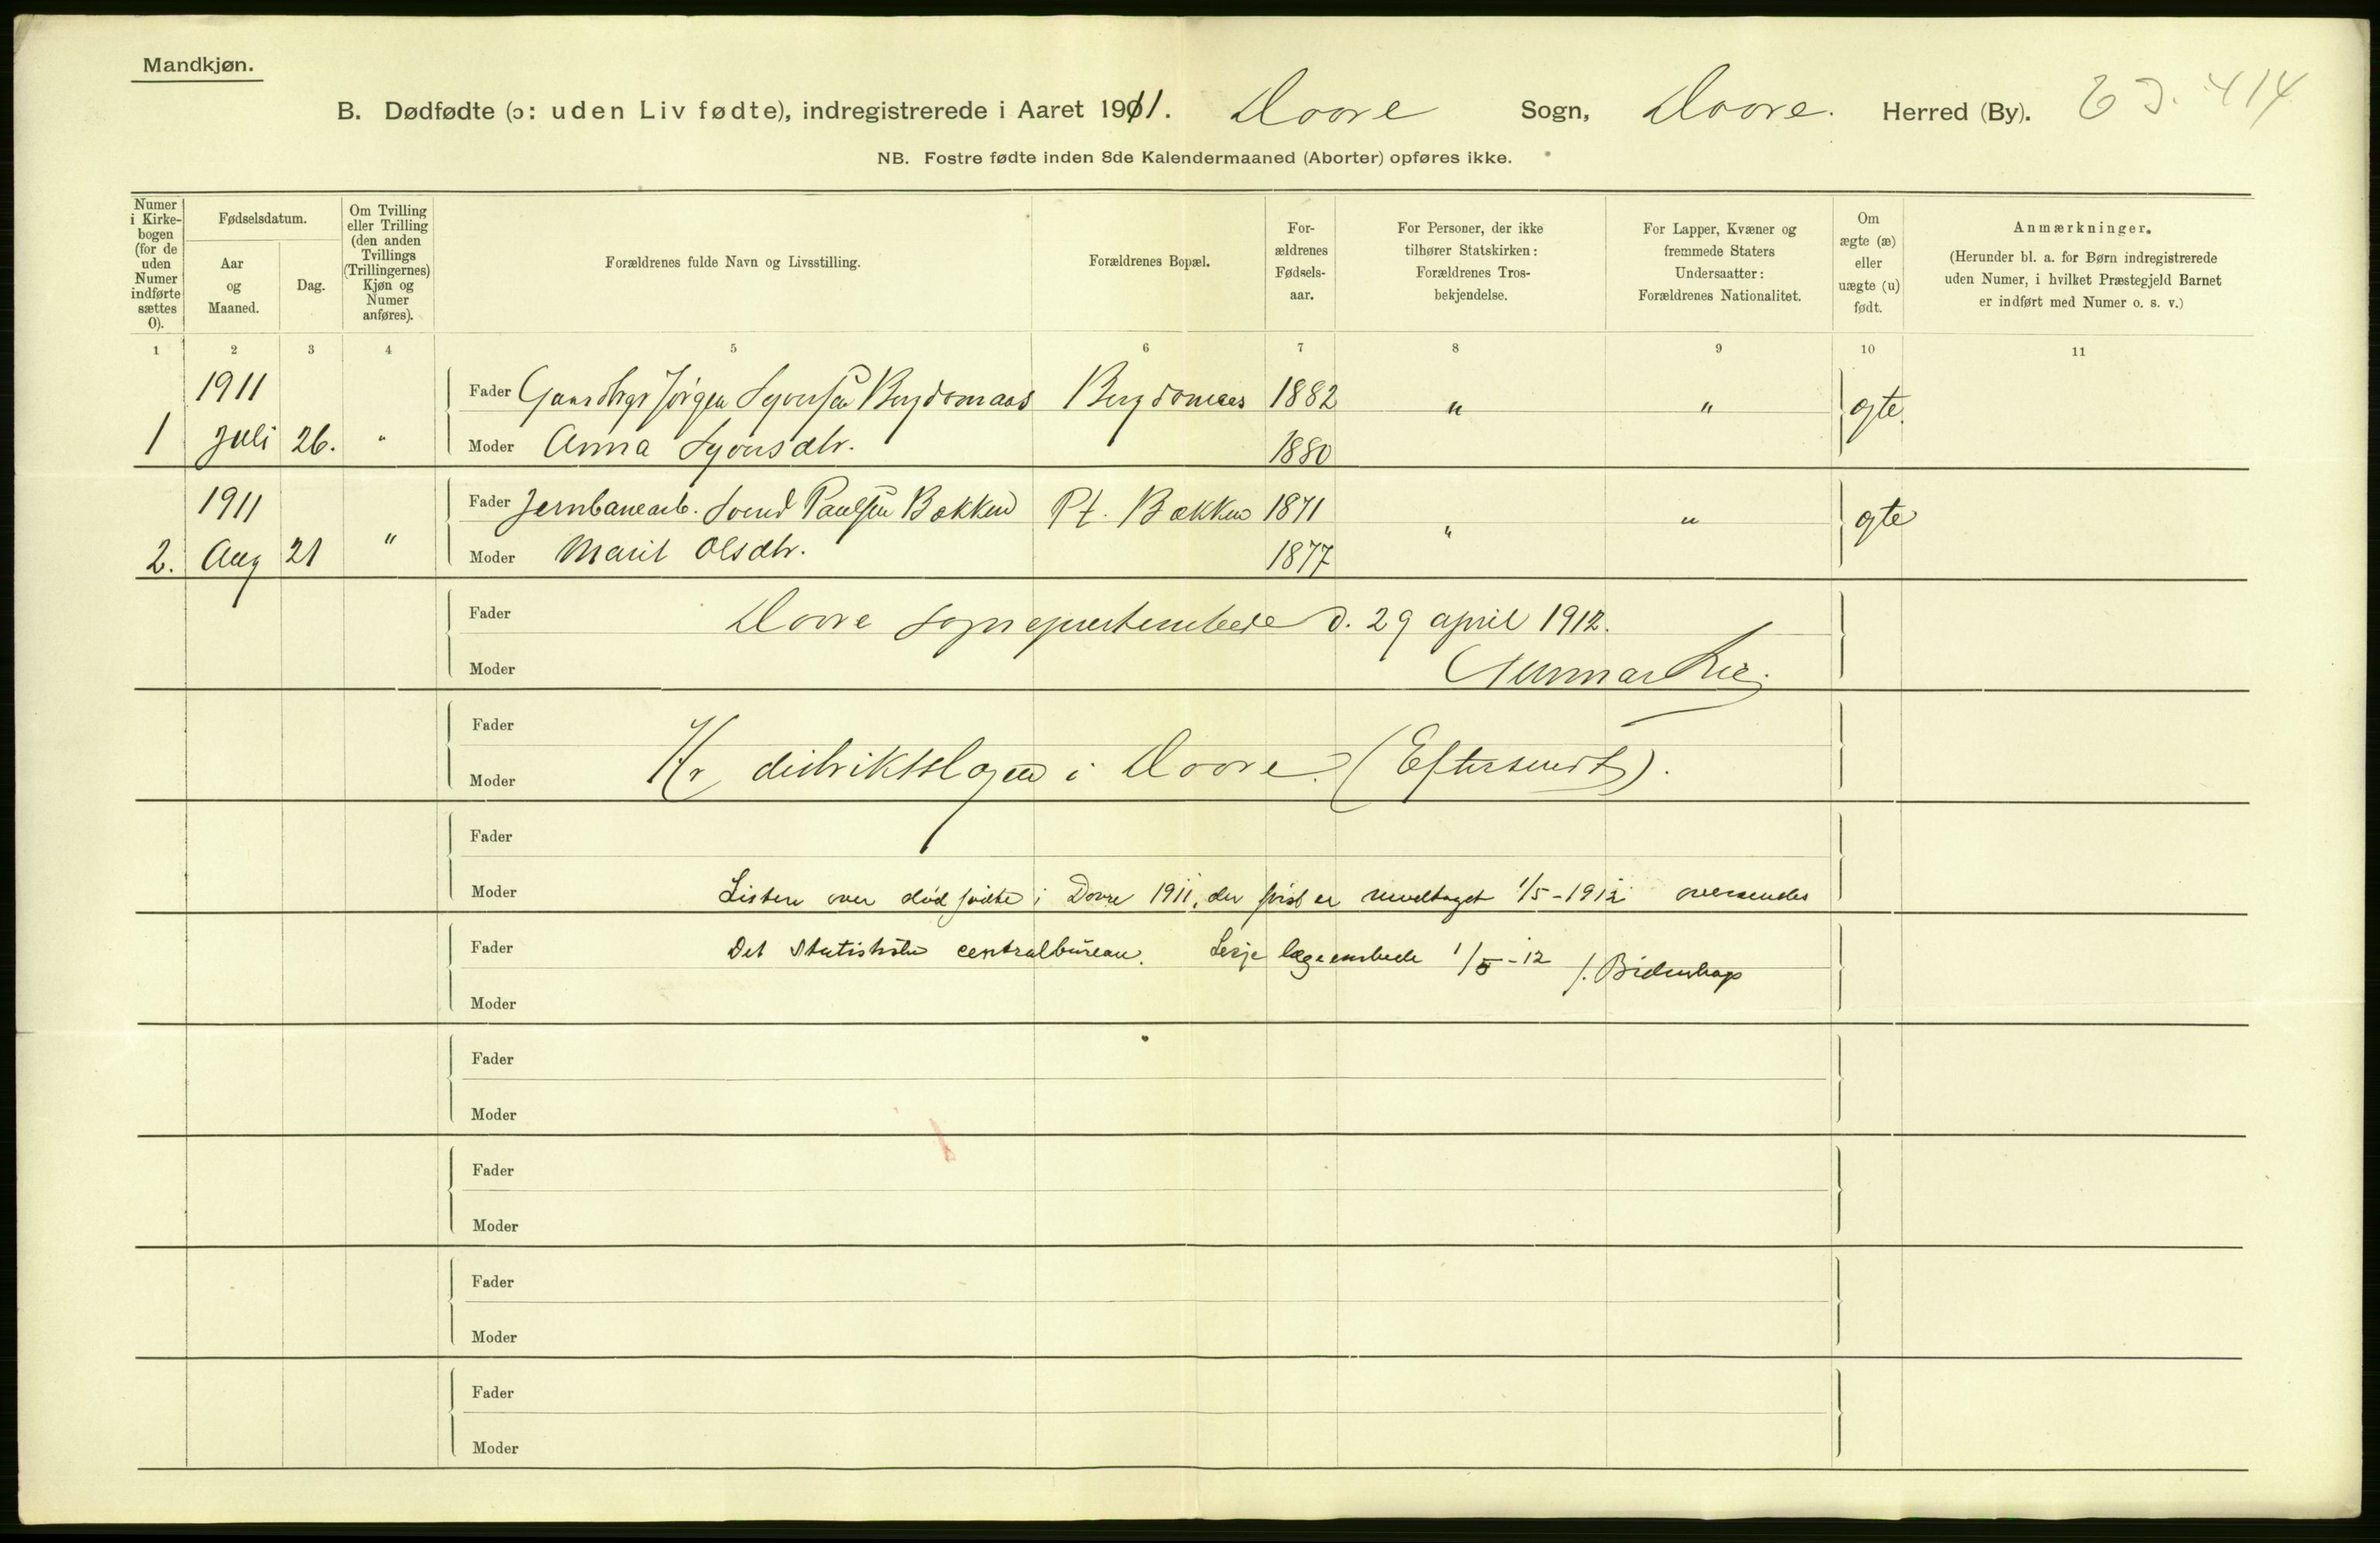 Mandkjøn.
B. Dødfødte (ɔ: uden Liv fødte), indregistrerede i Aaret 1911. Dovre Sogn, Dovre. Herred (By). 414
NB. Fostre fødte inden 8de Kalendermaaned (Aborter) opføres ikke.
Numer i Kirkebogen (for de uden Numer indførte sættes 0).
Fødselsdatum.
Aar og Maaned.
Dag.
Om Tvilling eller Trilling (den anden Tvillings (Trillingernes) Kjøn og Numer anføres).
Forældrenes fulde Navn og Livsstilling.
Forældrenes Bopæl.
For-ældrenes Fødsels-aar.
For Personer, der ikke tilhører Statskirken: Forældrenes Tros-bekjendelse.
For Lapper, Kvæner og fremmede Staters Undersaatter: Forældrenes Nationalitet.
Om ægte (æ) eller uægte (u) født.
Anmærkninger.
(Herunder bl. a. for Børn indregistrerede uden Numer, i hvilket Præstegjeld Barnet er indført med Numer o. s. v.)
1 2 3 4 5 6 7 8 9 10 11
1911 Fader Gaardbrgr Jørgen Syversen Bergdomaas Bergdomaas 1882 " " ægte.
1 Juli 26. " Moder Anna Syversdtr. 1880
1911 Fader Jernbanearb. Svend Paulsen Bakken Pt. Bakken 1871 " " ægte
2. Aug 21 " Moder Marit Olsdtr. 1877
Fader Dovre sogneprestembede d. 29 april 1912.
Moder Gunnar
Fader
Moder Hr distriktslægen i Dovre. (Eftersendt).
Fader
Moder Listen over dødfødte i Dovre 1911, der først er modtaget 1/5-1912 oversendes
Fader Det statistiske centralbureau. Lesje lægeembede 1/5-12
Moder
Fader
Moder
Fader
Moder
Fader
Moder
Fader
Moder